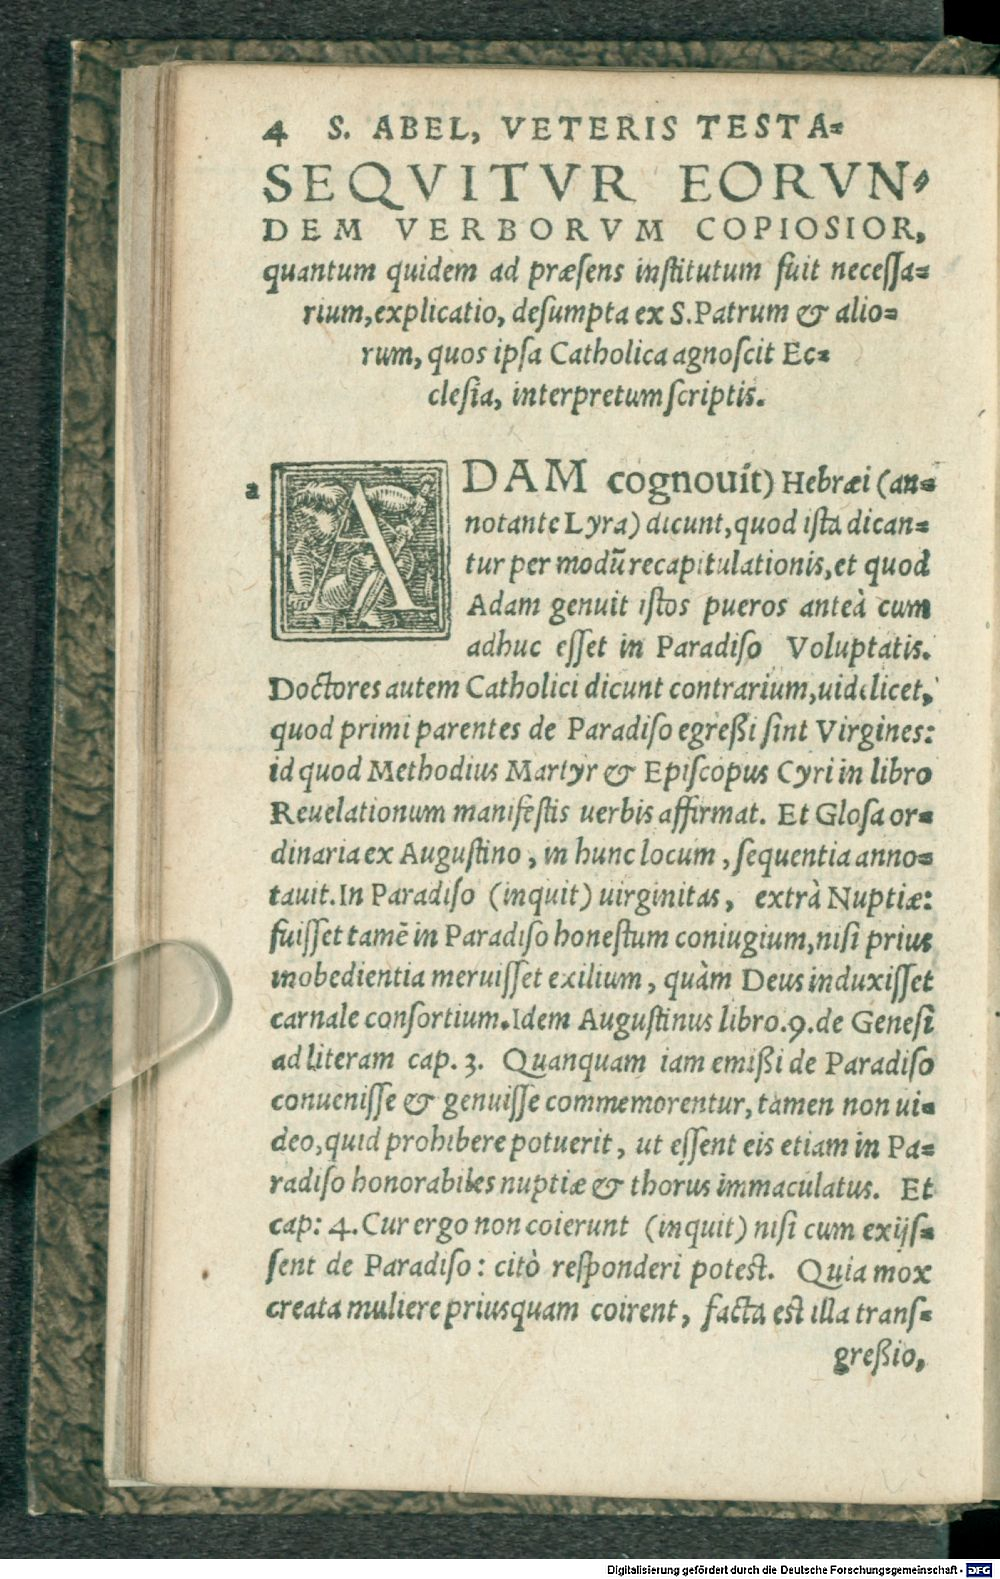 4 S. ABEL, VETERIS TESTA=
SEQVITVR EORVN=
DEM VERBORVM COPIOSIOR,
quantum quidem ad præsens institutum fuit necessa=
rium, explicatio, desumpta ex S. Patrum & alio=
rum, quos ipsa Catholica agnoscit Ec=
clesia, interpretum scriptis.
a ADAM cognouit) Hebræi (an=
notante Lyra) dicunt, quod ista dican=
tur per modũ recapitulationis, et quod
Adam genuit istos pueros anteà cum
adhuc esset in Paradiso Voluptatis.
Doctores autem Catholici dicunt contrarium, uidelicet,
quod primi parentes de Paradiso egreßi sint Virgines:
id quod Methodius Martyr & Episcopus Cyri in libro
Reuelationum manifestis uerbis affirmat. Et Glosa or=
dinaria ex Augustino, in hunc locum, sequentia anno=
tauit. In Paradiso (inquit) uirginitas, extrà Nuptiæ:
fuisset tamẽ in Paradiso honestum coniugium, nisi prius
inobedientia meruisset exilium, quàm Deus induxisset
carnale consortium. Idem Augustinus libro. 9. de Genesi
ad literam cap. 3. Quanquam iam emißi de Paradiso
conuenisse & genuisse commemorentur, tamen non ui=
deo, quid prohibere potuerit, ut essent eis etiam in Pa=
radiso honorabiles nuptiæ & thorus immaculatus. Et
cap: 4. Cur ergo non coierunt (inquit) nisi cum exijs=
sent de Paradiso: citò responderi potest. Quia mox
creata muliere priusquam coirent, facta est illa trans=
greßio,
Digitalisierung gefördert durch die Deutsche Forschungsgemeinschaft - DFG